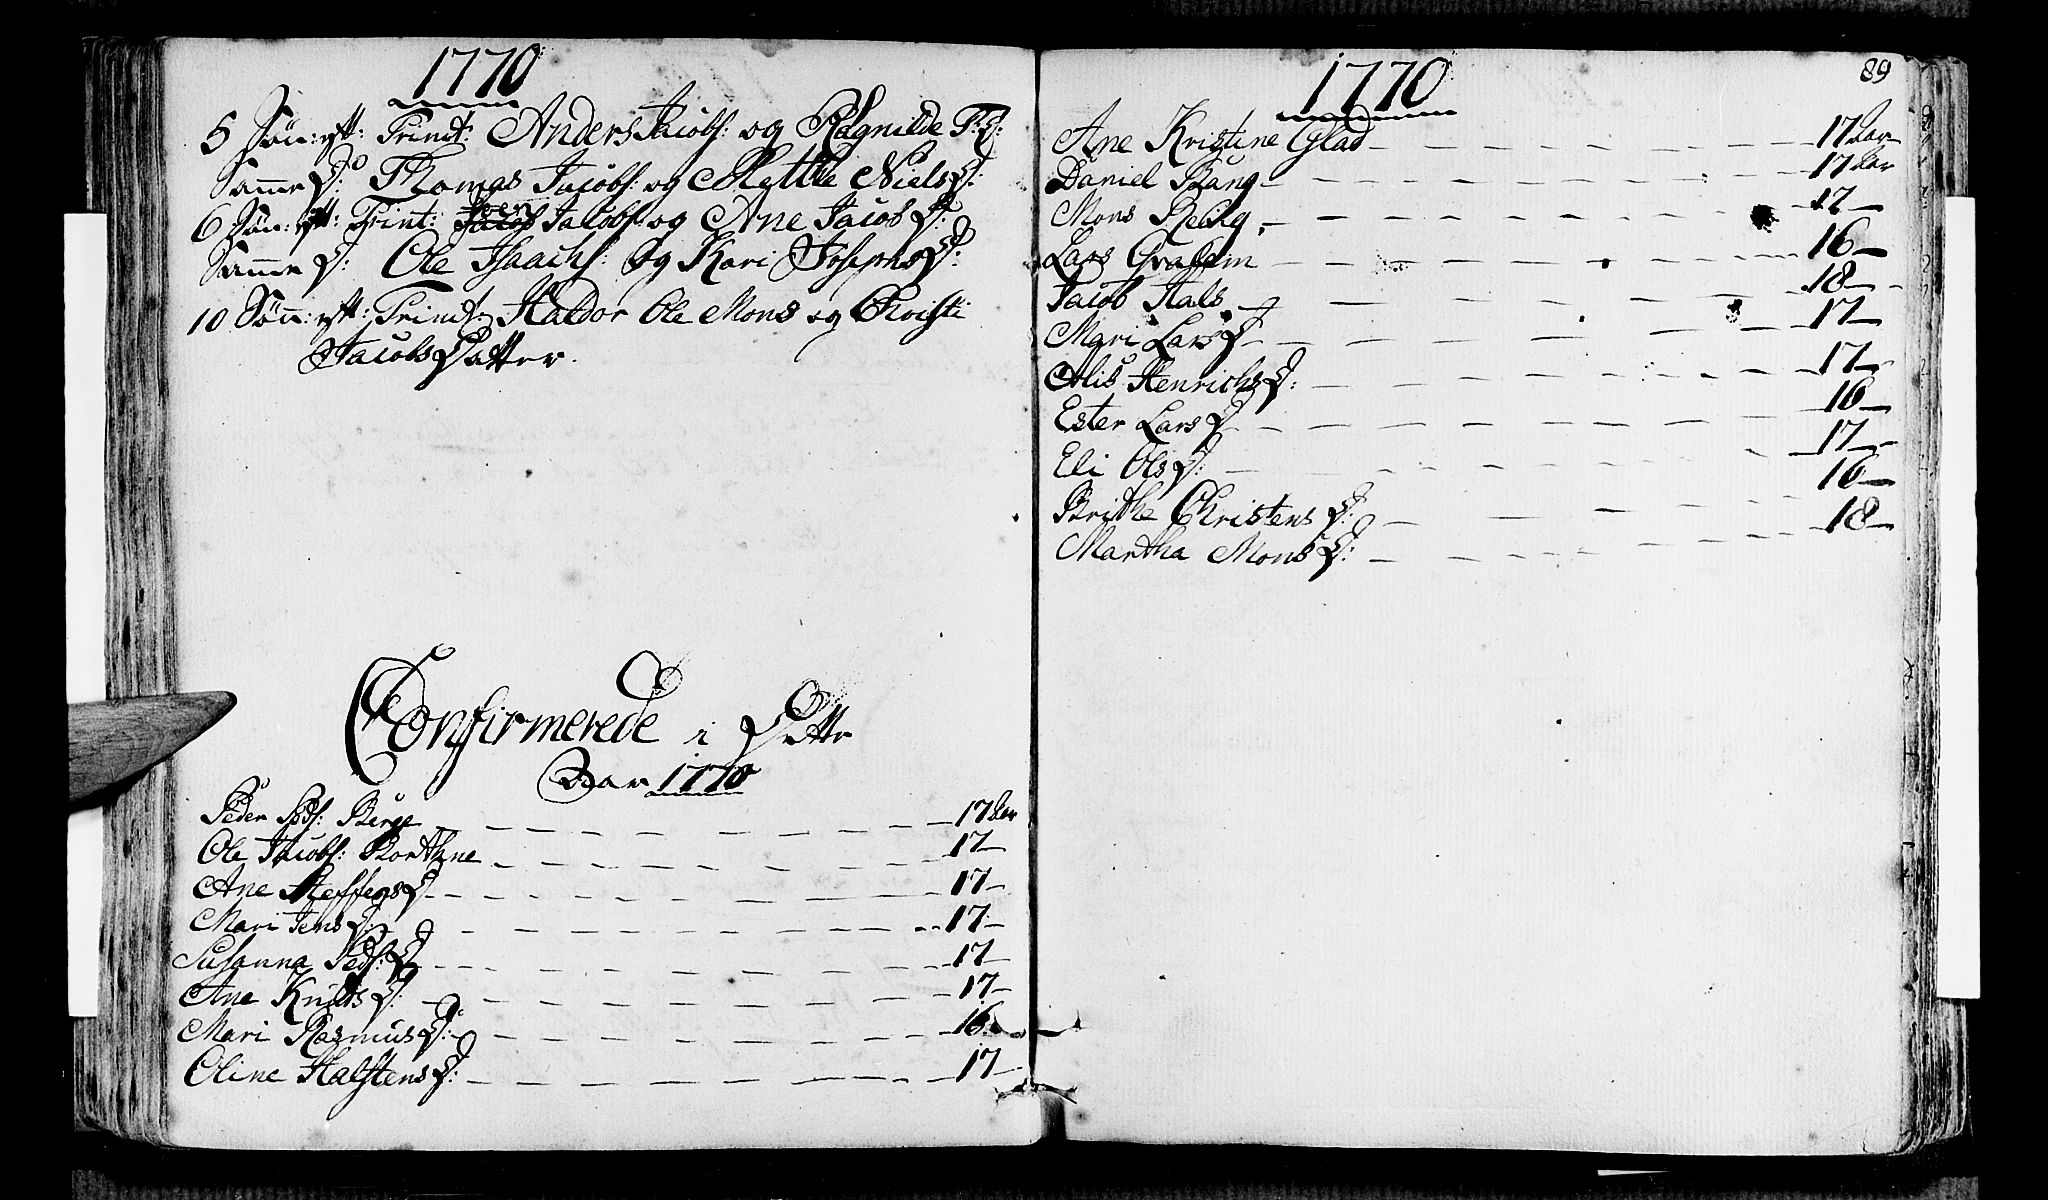 1770
5 Søn: eft: Trinit: Anders Jacobs: og Ragnilde T:D:
Samme D: Thomas Jacobs: og Mette Niels D:
6 Søn: eft: Trinit: Jacobs: og Ane Jacob D:
Samme D: Ole Isachs: og Kari Josephs D:
10 Søn: eft: Trinit: Haldor Ole Mons og Christi
Jacobs Datter.
Confirmerede i Dette
Aar 1770
Peder Peds: Berge 17 Aar
Ole Jacobs: Borthne 17
Ane Steffens D 17
Mari Jens D: 17
Susanna Peds: D 17
Ane Knuds D: 17
Mari Rasmus D: 16
Oline Halstens D: 17
1770
89
Ane Kristine Glad 17 Aar
Daniel Bang 17 Aar
Mons 17
Lars 16
Jacob Hals 18
Mari Lars D 17
Alis Henrichs D: 17
Ester Lars D 16
Eli Ols D: 17
Brithe Christens D: 16
Martha Mons D: 18